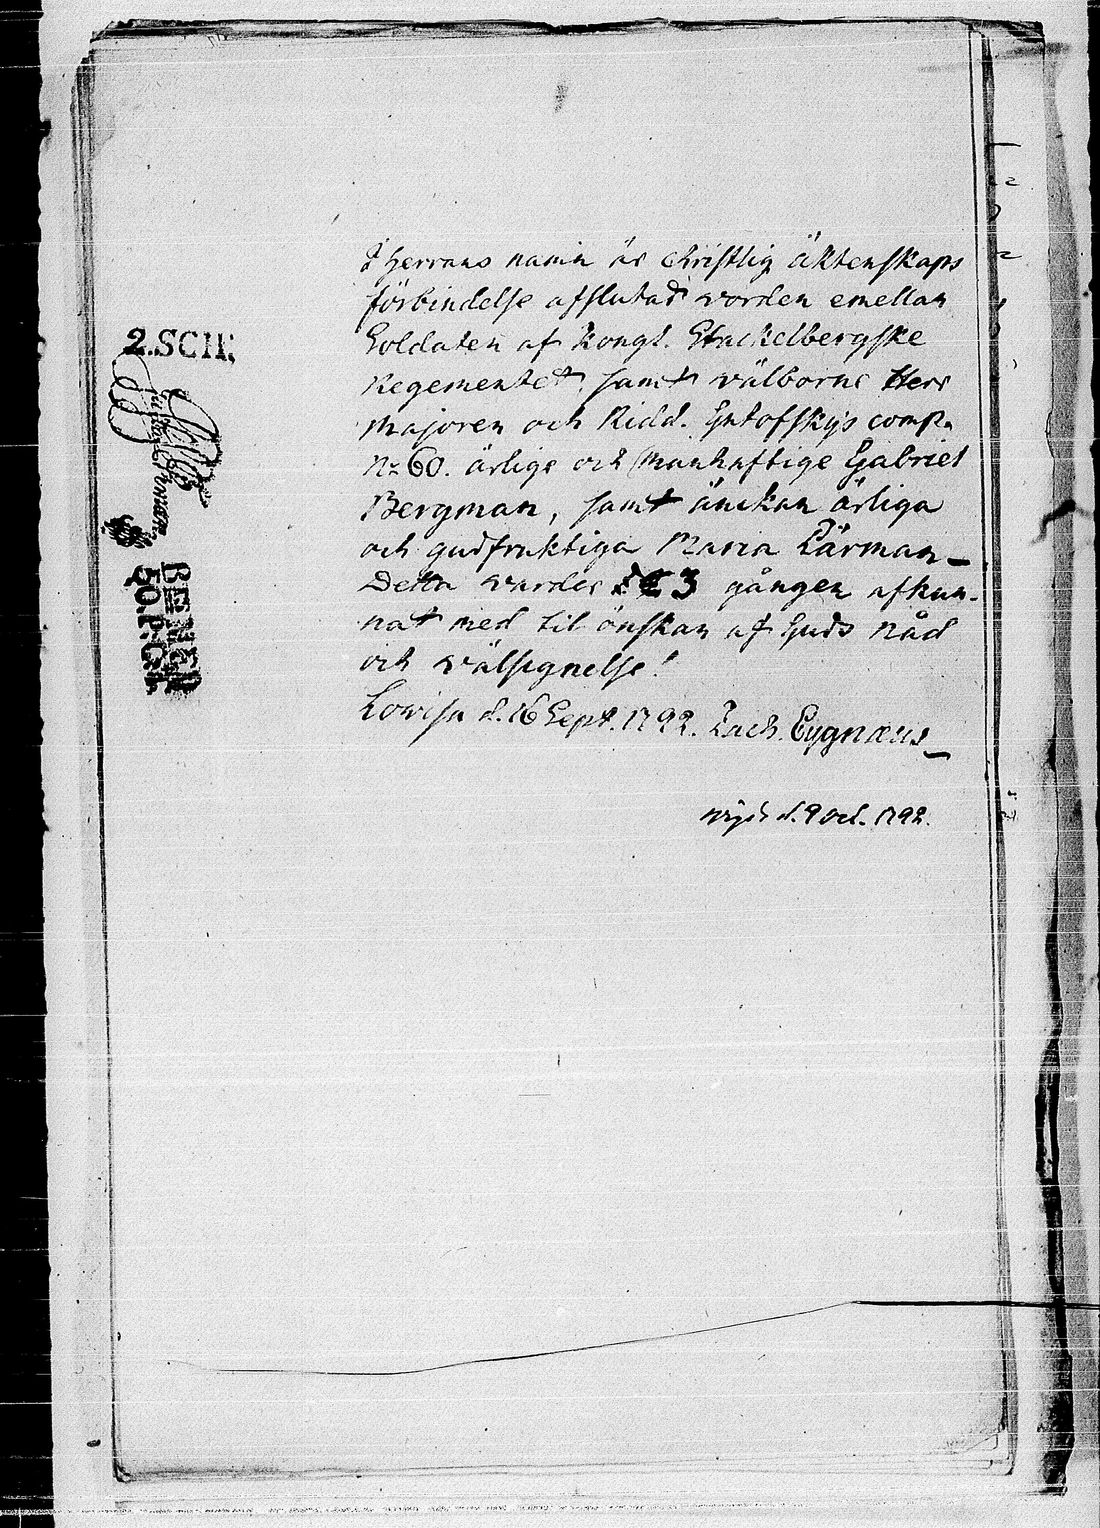 I Herrans namn är christlig äktenskaps
förbindelse afslutad worden emellan
Soldaten af Kongl. Stackelbergske
Regementet, samt wälborne Herr
Majoren och Ridd. Gutofskys comp.
No 60. ärlige och Manhaftige Gabriel
Bergman, samt änckan ärliga
och gudfruktiga Maria Lärman
Detta warder 3 gången afkun-
nat med til önskan af Guds Nåd
och wälsignelse!
Lowisa d. 16 Sept. 1792. Zach. Cygnæus
wigde d. 9 Oct. 1792.
2. SCH;